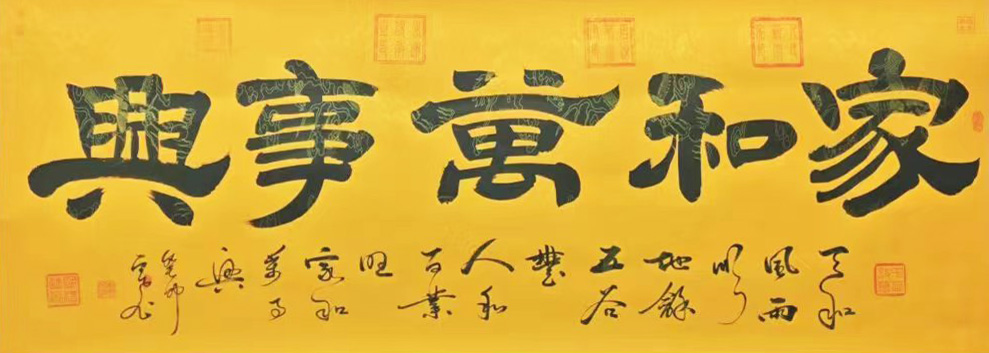 家和萬事興
天和
風雨
順
地餘
五谷
豐
人和
百業
旺
家和
萬事
興
癸卯